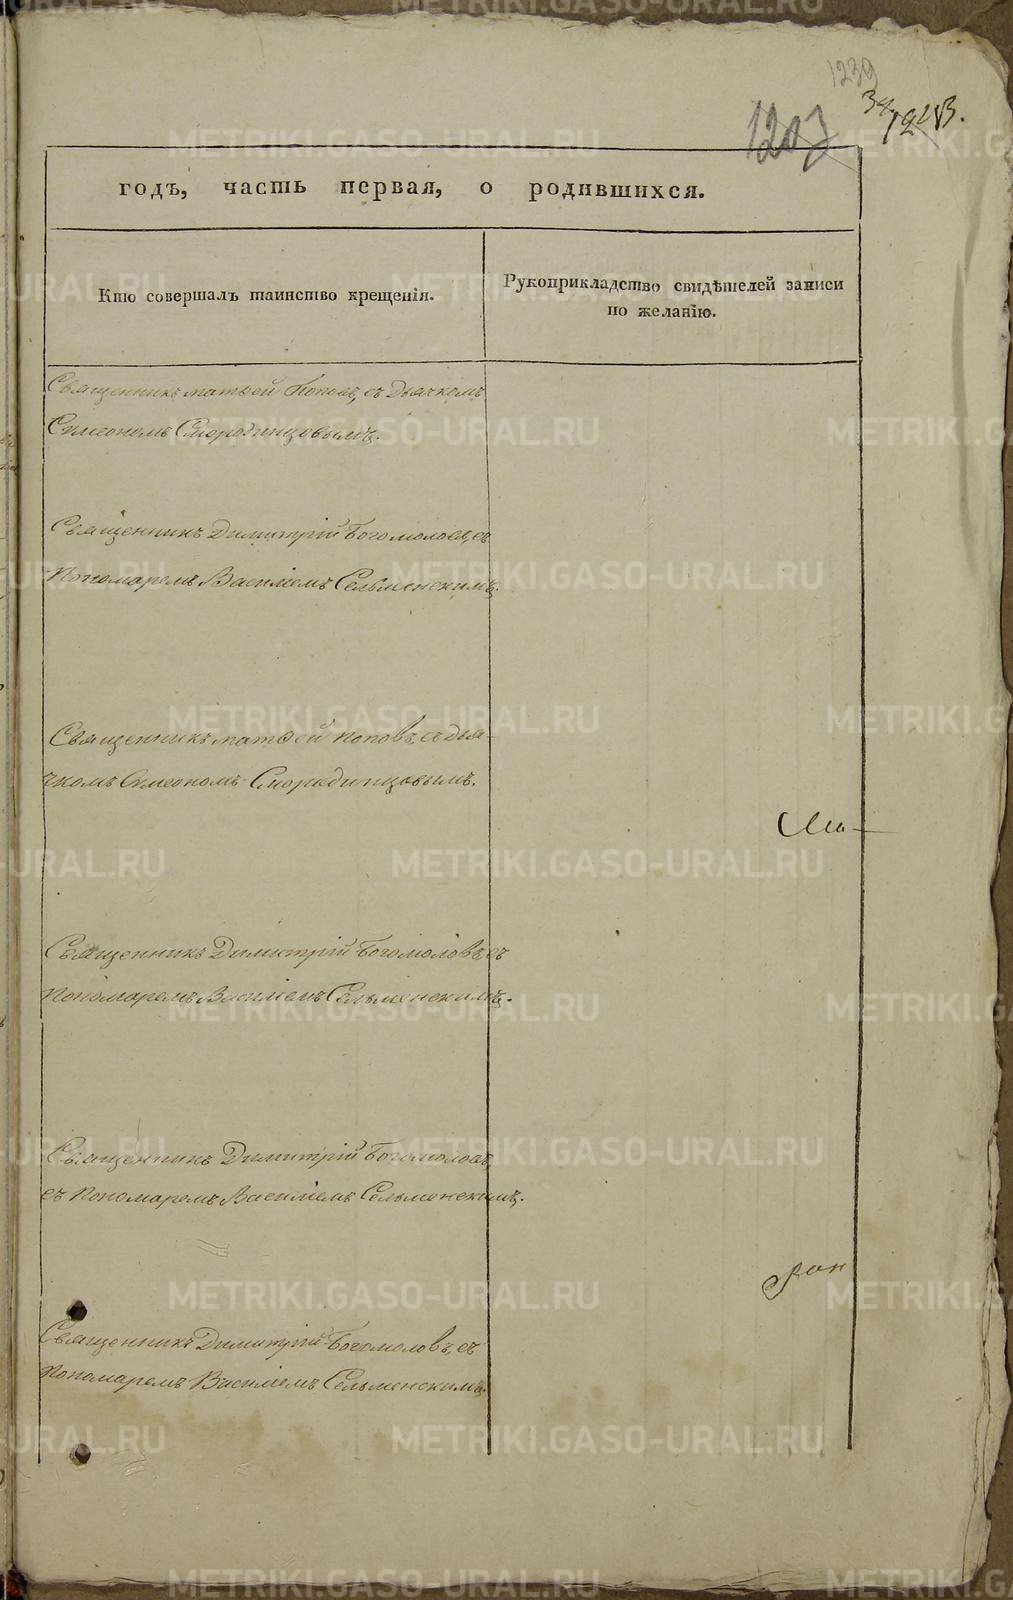 1239
1203
годъ, часть первая, о родившихся.
Кто совершалъ таинство крещенія.
Рукоприкладство свидѣтелей записи
по желанію.
Священникъ Матѳей Поповъ, съ Дьячкомъ
Симеономъ Смородинцовымъ.
Священникъ Димитрій Богомоловъ, съ
Пономаремъ Василіемъ Сельменскимъ.
Священникъ Матѳей Поповъ, съ дья-
чкомъ Симеономъ Смородинцовымъ.
Священникъ Димитрій Богомоловъ, съ
Пономаремъ Василіемъ Сельменскимъ.
Священникъ Димитрій Богомоловъ,
съ Пономаремъ Василіемъ Сельменскимъ.
Священникъ Димитрій Богомоловъ, съ
Пономаремъ Василіемъ Сельменскимъ.
METRIKI.GASO-URAL.RU